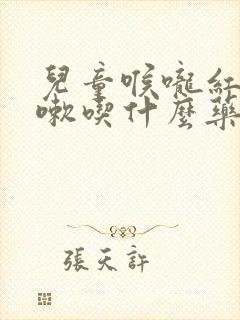 兒童喉嚨紅
嗽喫什麼藥
張天許